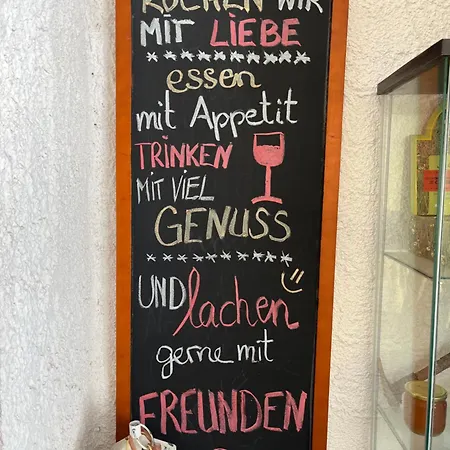 KOCHEN WIR
MIT LIEBE
******* *******
essen
mit Appetit
TRINKEN
MIT VIEL
GENUSS
***** *****
UND lachen
gerne mit
FREUNDEN